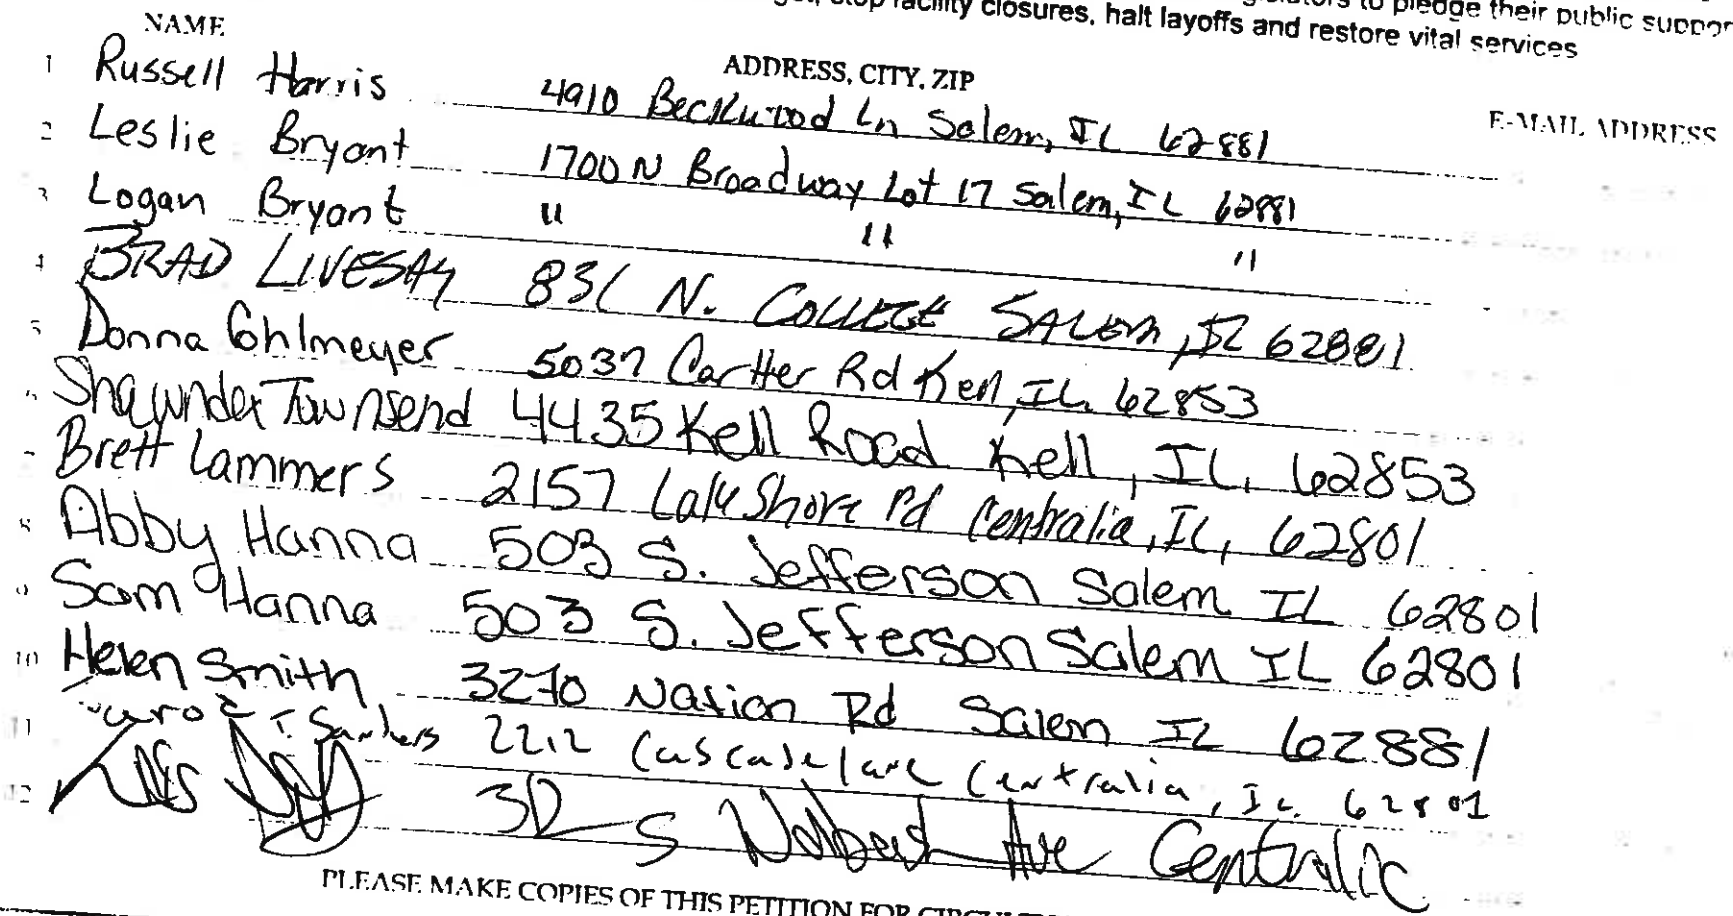 to pledge their public suppor
facility closures, halt layoffs and restore vital services
NAME
ADDRESS, CITY, ZIP
E-MAIL ADDRESS
1 Russell Harris 4910 Beckwood Ln Salem, IL 62881
2 Leslie Bryant 1700 N Broadway Lot 17 Salem, IL 62881
3 Logan Bryant " " "
4 BRAD LIVESAY 831 N. COLLEGE SALEM, IL 62881
5 Donna Ohlmeyer 5037 Cartter Rd Kell, IL. 62853
6 Shawnda Townsend 4435 Kell Road Kell, IL, 62853
7 Brett Lammers 2157 Lake Shore Rd Centralia, IL, 62801
8 Abby Hanna 503 S. Jefferson Salem IL 62801
9 Sam Hanna 503 S. Jefferson Salem IL 62801
10 Helen Smith 3270 Nation Rd Salem IL 62881
11 Sanders 2212 Cascade lane Centralia, IL. 62801
12 S Ave Centralia
PLEASE MAKE COPIES OF THIS PETITION FOR